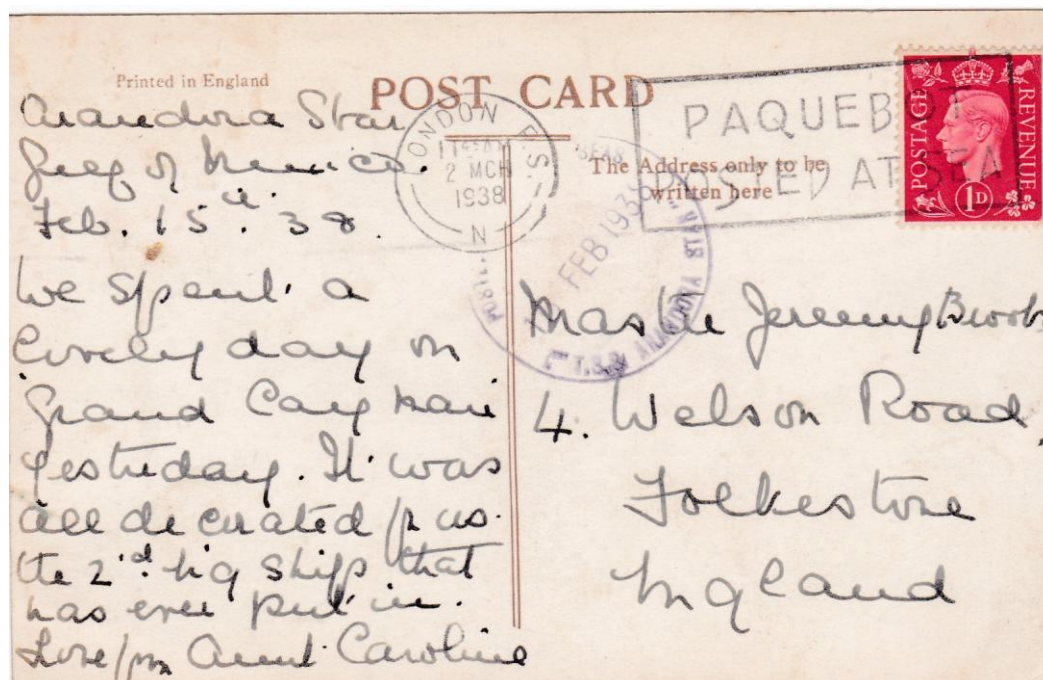 Printed in England
POST CARD
The Address only to be
written here
LONDON F.S.
2 MCH
1938
N
PAQUEBOT
POSTED AT SEA
POSTAGE
REVENUE
1D
FEB 1938
T.S.S. ARANDORA STAR
Arandora Star
Gulf of Mexico.
Feb. 15th. 38.
We spent a
lovely day on
Grand Cayman
yesterday. It was
all decorated for us.
the 2nd. big ship that
has ever put in.
Love from Aunt Caroline
Master Jeremy
4. Welson Road,
Folkestone
England